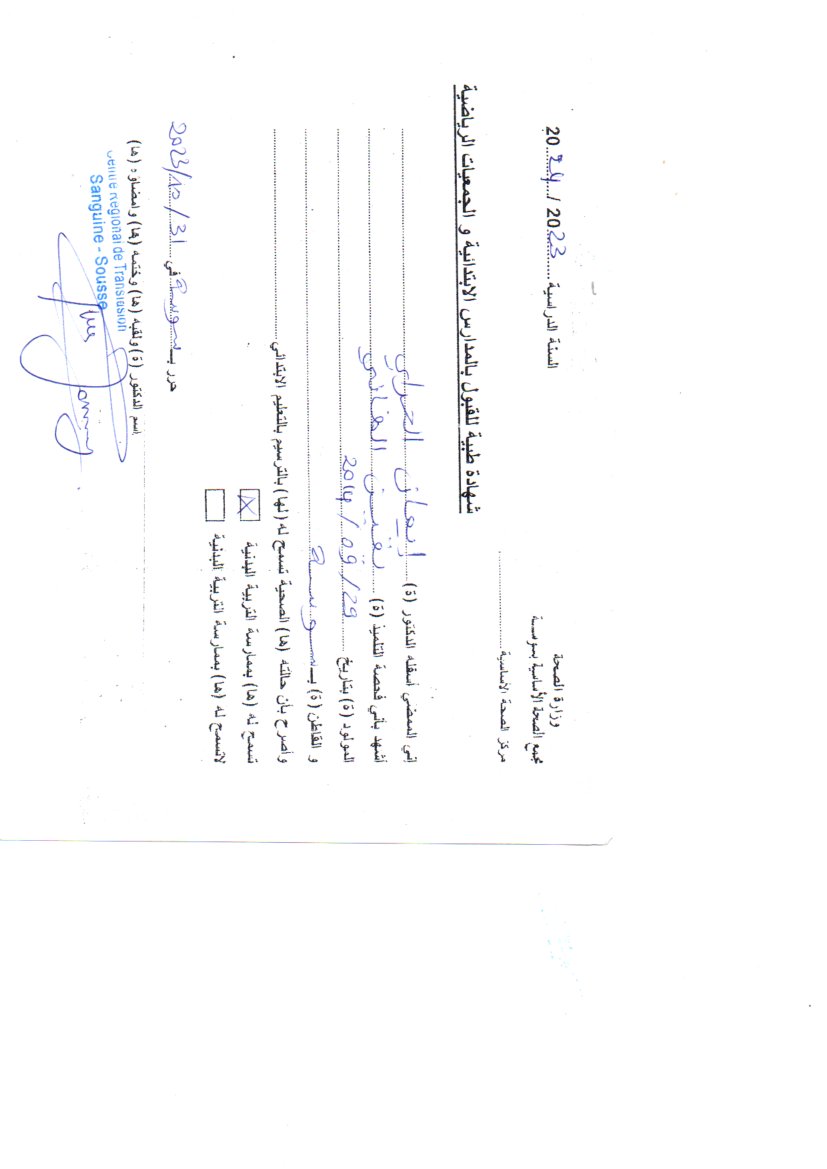 وزارة الصحة
مجمع الصحة الأساسية بسوسة
مركز الصحة الاساسية
السنة الدراسية 2023 / 2024
شهادة طبية للقبول بالمدارس الابتدائية و الجمعيات الرياضية
إني الممضي أسفله الدكتور (ة) إيمان
أشهد بأني فحصة التلميذ (ة)
المولود (ة) بتاريخ 2014/09/29
و القاطن (ة) بـ سوسة
و أصرح بأن حالته (ها) الصحية تسمح له (لها) بالترسيم بالتعليم الابتدائي
تسمح له (ها) بممارسة التربية البدنية X
لاتسمح له (ها) بممارسة التربية البدنية
حرر بـ سوسة في 2023/10/31
اسم الدكتور (ة) ولقبه (ها) وختمه (ها) وامضاؤه (ها)
Centre Régional de Transfusion
Sanguine - Sousse